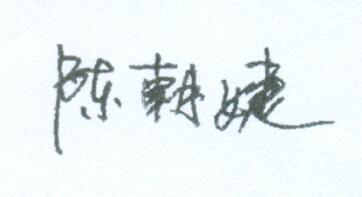 陈朝婕